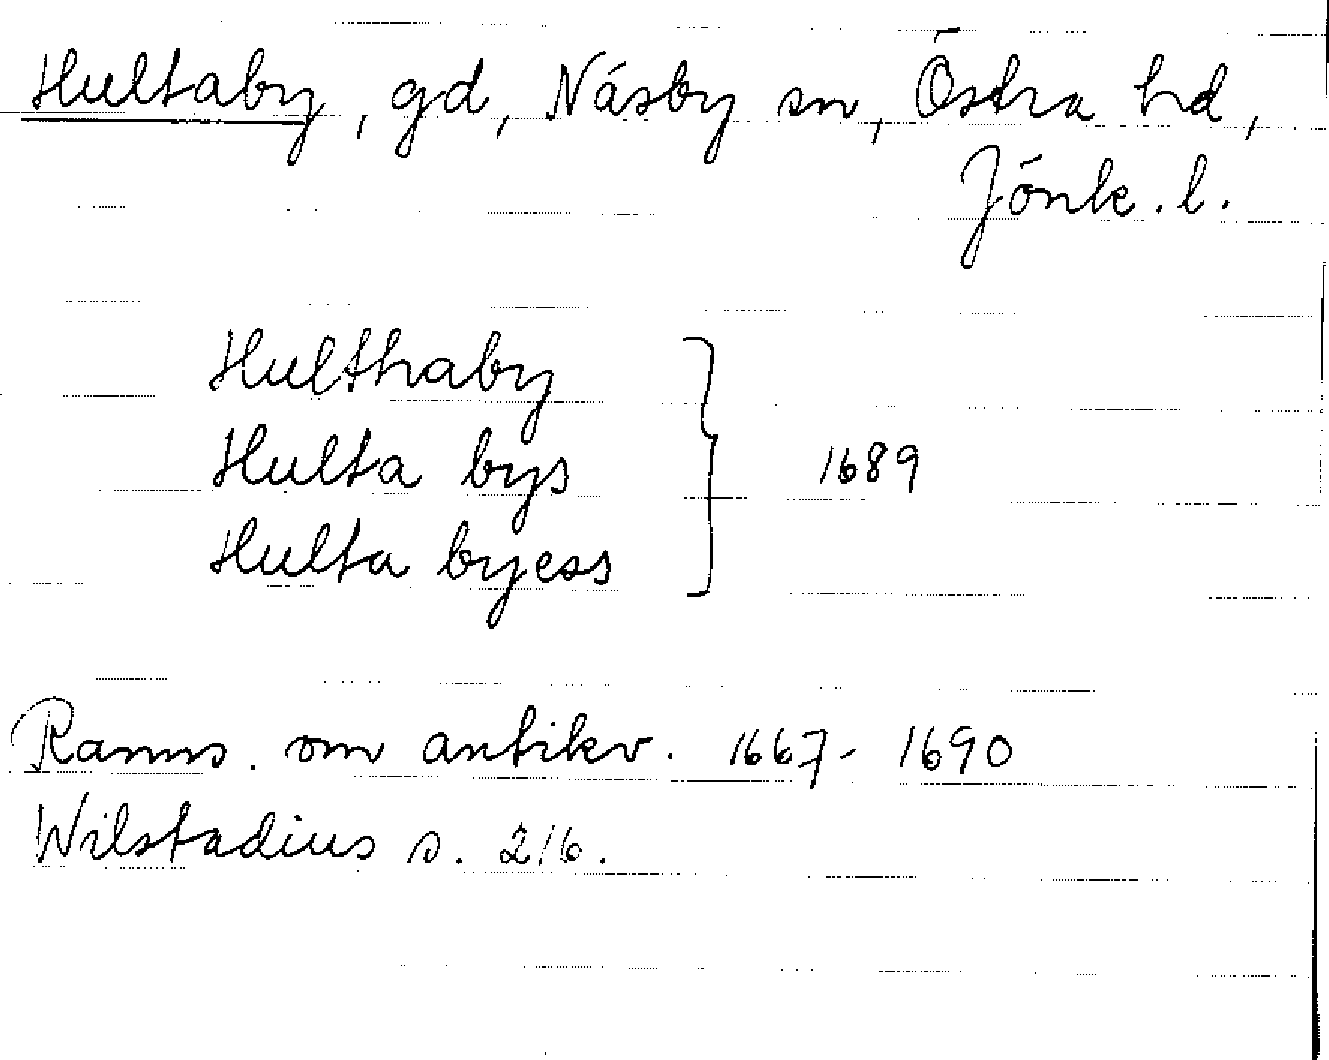 Hultaby, gd, Näsby sn, Östra hd,
Jönk. l.
Hulthaby
Hulta bys
Hulta byess
} 1689
Ranns. om antikv. 1667- 1690
Wilstadius s. 216.